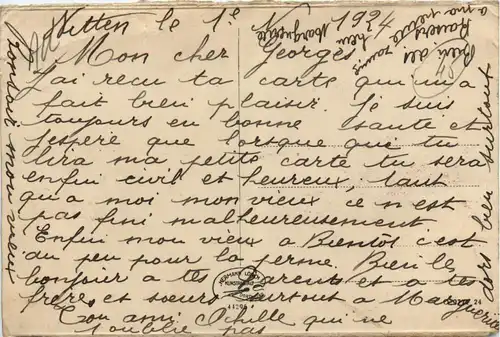 Witten le 1e N 1924
Mon cher Georges
J'ai reçu ta carte qui m'a
fait bien plaisir. Je suis
toujours en bonne santé et
j'espère que lorsque qui tu
lira ma petite carte tu sera
enfin civil et heureux, tant
qu'a moi mon vieux ce n'est
pas fini malheureusement
Enfin mon vieux a Bientôt c'est
du peu pour la ferme. Bien le
bonjour a tes parents et a tes
frères et soeurs surtout a Marguerite
Ton ami Achille qui ne
t'oublie pas
bonsoir mon vieux
dors bien surtout
Bien des
Baisers
a ma petite
Marguerite
HERMANN LORCH
KUNSTANSTALT
DORTMUND
44294
24